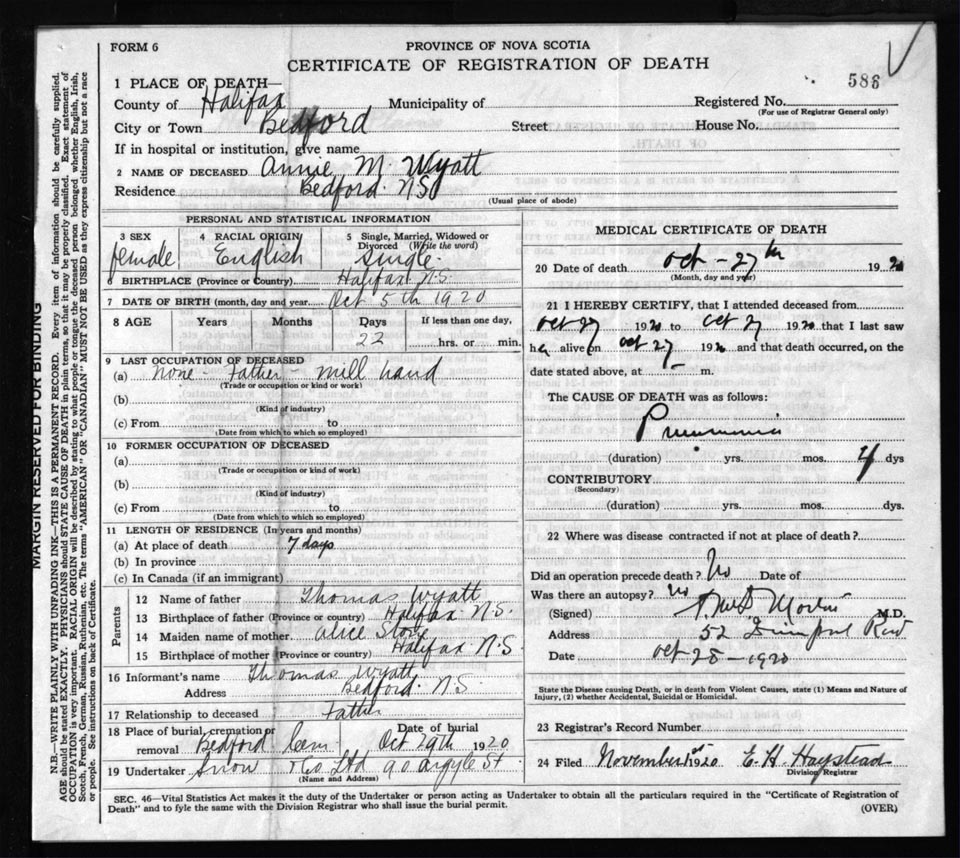 FORM 6
PROVINCE OF NOVA SCOTIA
CERTIFICATE OF REGISTRATION OF DEATH
586
1 PLACE OF DEATH—
County of Halifax Municipality of Registered No.
(For use of Registrar General only)
City or Town Bedford Street House No.
If in hospital or institution, give name
2 NAME OF DECEASED Annie M. Wyatt
Residence Bedford. N.S.
(Usual place of abode)
PERSONAL AND STATISTICAL INFORMATION
3 SEX 4 RACIAL ORIGIN 5 Single, Married, Widowed or Divorced (Write the word)
female English Single.
6 BIRTHPLACE (Province or Country) Halifax N.S.
7 DATE OF BIRTH (month, day and year) Oct 5th 1920
8 AGE Years Months Days If less than one day,
22 hrs. or min.
9 LAST OCCUPATION OF DECEASED
(a) None - Father - mill hand
(Trade or occupation or kind or work)
(b)
(Kind of industry)
(c) From to
(Date from which to which so employed)
10 FORMER OCCUPATION OF DECEASED
(a)
(Trade or occupation or kind of work)
(b)
(Kind of industry)
(c) From to
(Date from which to which so employed)
11 LENGTH OF RESIDENCE (In years and months)
(a) At place of death 7 days
(b) In province
(c) In Canada (if an immigrant)
Parents
12 Name of father Thomas Wyatt
13 Birthplace of father (Province or country) Halifax N.S.
14 Maiden name of mother Alice
15 Birthplace of mother (Province or country) Halifax N.S
16 Informant's name Thomas Wyatt
Address Bedford. N.S
17 Relationship to deceased Father
18 Place of burial, cremation or removal Bedford Cem. Date of burial Oct 29th 1920
19 Undertaker Snow & Co. Ltd 90 Argyle St
(Name and Address)
MEDICAL CERTIFICATE OF DEATH
20 Date of death Oct - 27th 1920
(Month, day and year)
21 I HEREBY CERTIFY, that I attended deceased from
Oct 27 1920 to Oct 27 1920 that I last saw
her alive on Oct 27 1920 and that death occurred, on the
date stated above, at m.
The CAUSE OF DEATH was as follows:
Pneumonia
(duration) yrs. mos. 4 dys
CONTRIBUTORY
(Secondary)
(duration) yrs. mos. dys.
22 Where was disease contracted if not at place of death?
Did an operation precede death? No Date of
Was there an autopsy? No
(Signed) M.D.
Address 52
Date Oct-28-1920
State the Disease causing Death, or in death from Violent Causes, state (1) Means and Nature of
Injury, (2) whether Accidental, Suicidal or Homicidal.
23 Registrar's Record Number
24 Filed November 1st 1920 E. H. Haystead
Division Registrar
SEC. 46—Vital Statistics Act makes it the duty of the Undertaker or person acting as Undertaker to obtain all the particulars required in the "Certificate of Registration of
Death" and to fyle the same with the Division Registrar who shall issue the burial permit. (OVER)
MARGIN RESERVED FOR BINDING
N.B.—WRITE PLAINLY WITH UNFADING INK—THIS IS A PERMANENT RECORD. Every item of information should be carefully supplied.
AGE should be stated EXACTLY. PHYSICIANS should STATE CAUSE OF DEATH in plain terms, so that it may be properly classified. Exact statement of
OCCUPATION is very important. RACIAL ORIGIN will be described by stating to what people or tongue the deceased person belonged whether English, Irish,
Scotch, French, German, Russian, Ruthenian, etc. The terms "AMERICAN" OR "CANADIAN" MUST NOT BE USED as they express citizenship but not a race
or people. See instructions on back of Certificate.